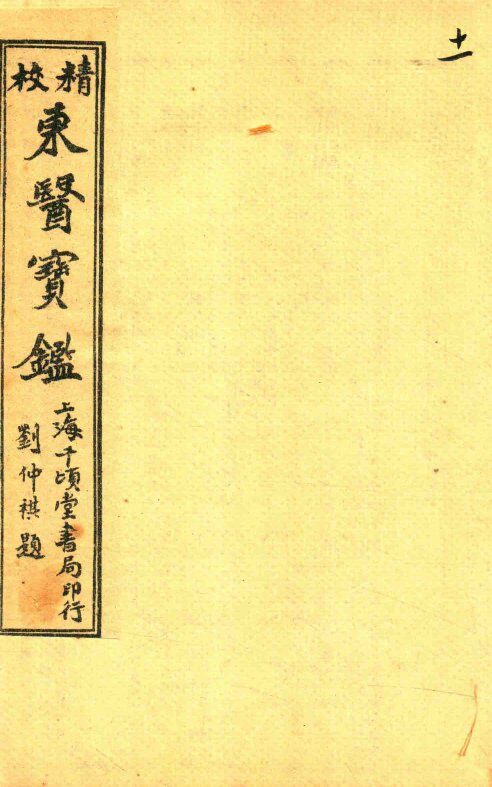 十一
精校
東醫寶鑑
上海千頃堂書局印行
劉仲祺題